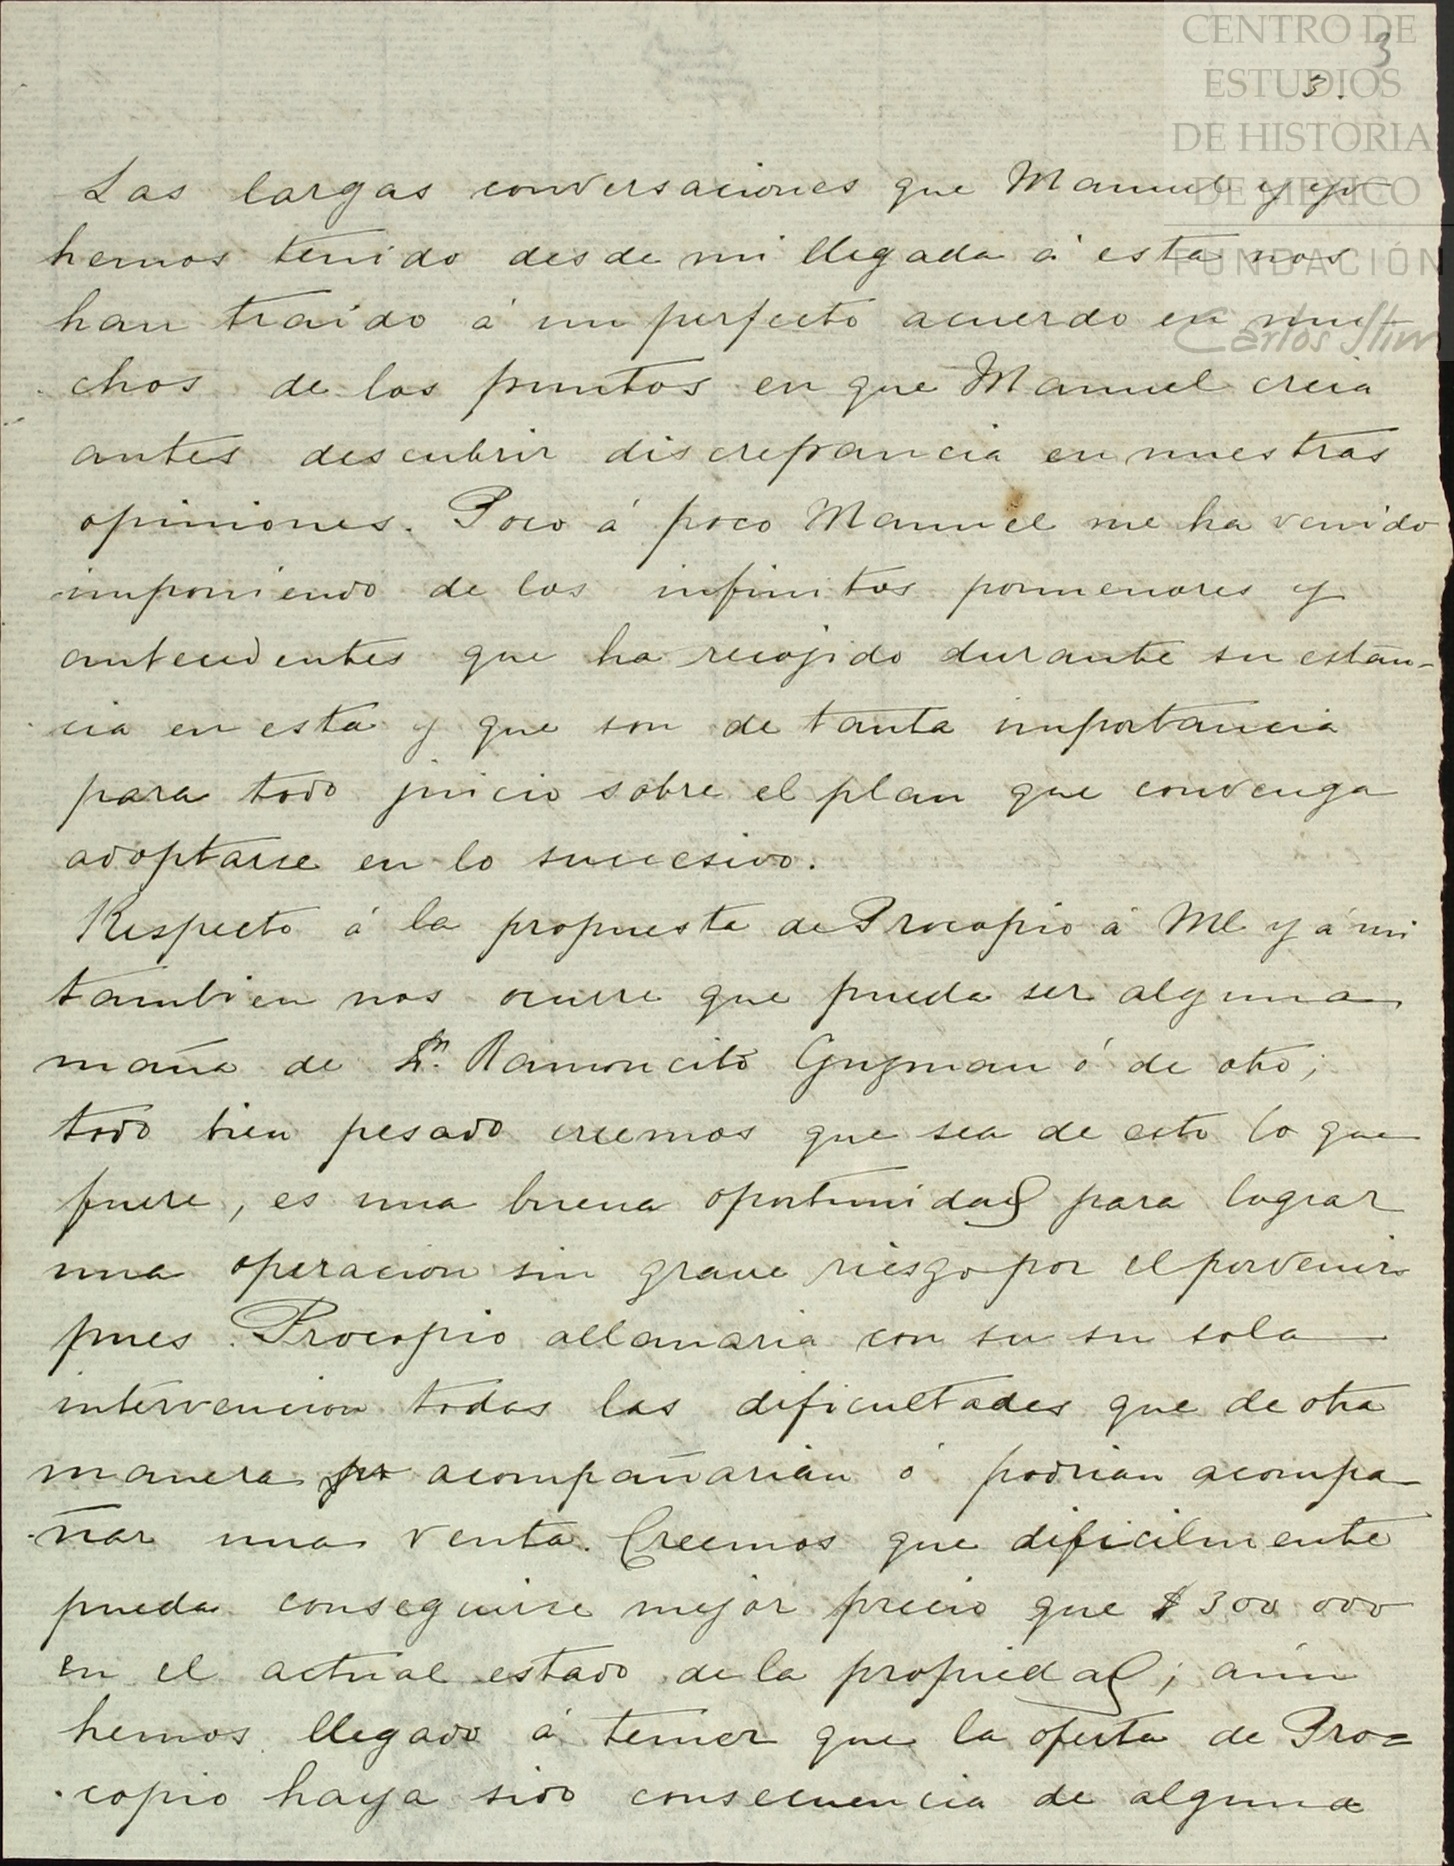 CENTRO DE
ESTUDIOS
DE HISTORIA
DE MEXICO
FUNDACIÓN
Carlos Slim
3
3.
Las largas conversaciones que Manuel y yo
hemos tenido desde mi llegada á esta nos
han traido á un perfecto acuerdo en mu
chos de los puntos en que Manuel creia
antes descubrir discrepancia en nuestras
opiniones. Poco á poco Manuel me ha venido
imponiendo de los infinitos pormenores y
antecedentes que ha recojido durante su estan-
cia en esta y que son de tanta importancia
para todo juicio sobre el plan que convenga
adoptarse en lo succesivo.
Respecto á la propuesta de Procopio á Ml y á mi
tambien nos ocurre que pueda ser alguna
maña de Dn. Ramoncito Guzman ó de otro;
todo bien pesado creemos que sea de esto lo que
fuere, es una buena oportunidad para lograr
una operacion sin grave riesgo por el porvenir
pues Procopio allanaria con su su sola
intervencion todas las dificultades que de otra
manera acompañarian ó podrian acompa
ñar una venta. Creemos que dificilmente
pueda conseguirse mejor precio que $300 000
en el actual estado de la propiedad; aun
hemos llegado á temer que la oferta de Pro=
copio haya sido consecuencia de alguna